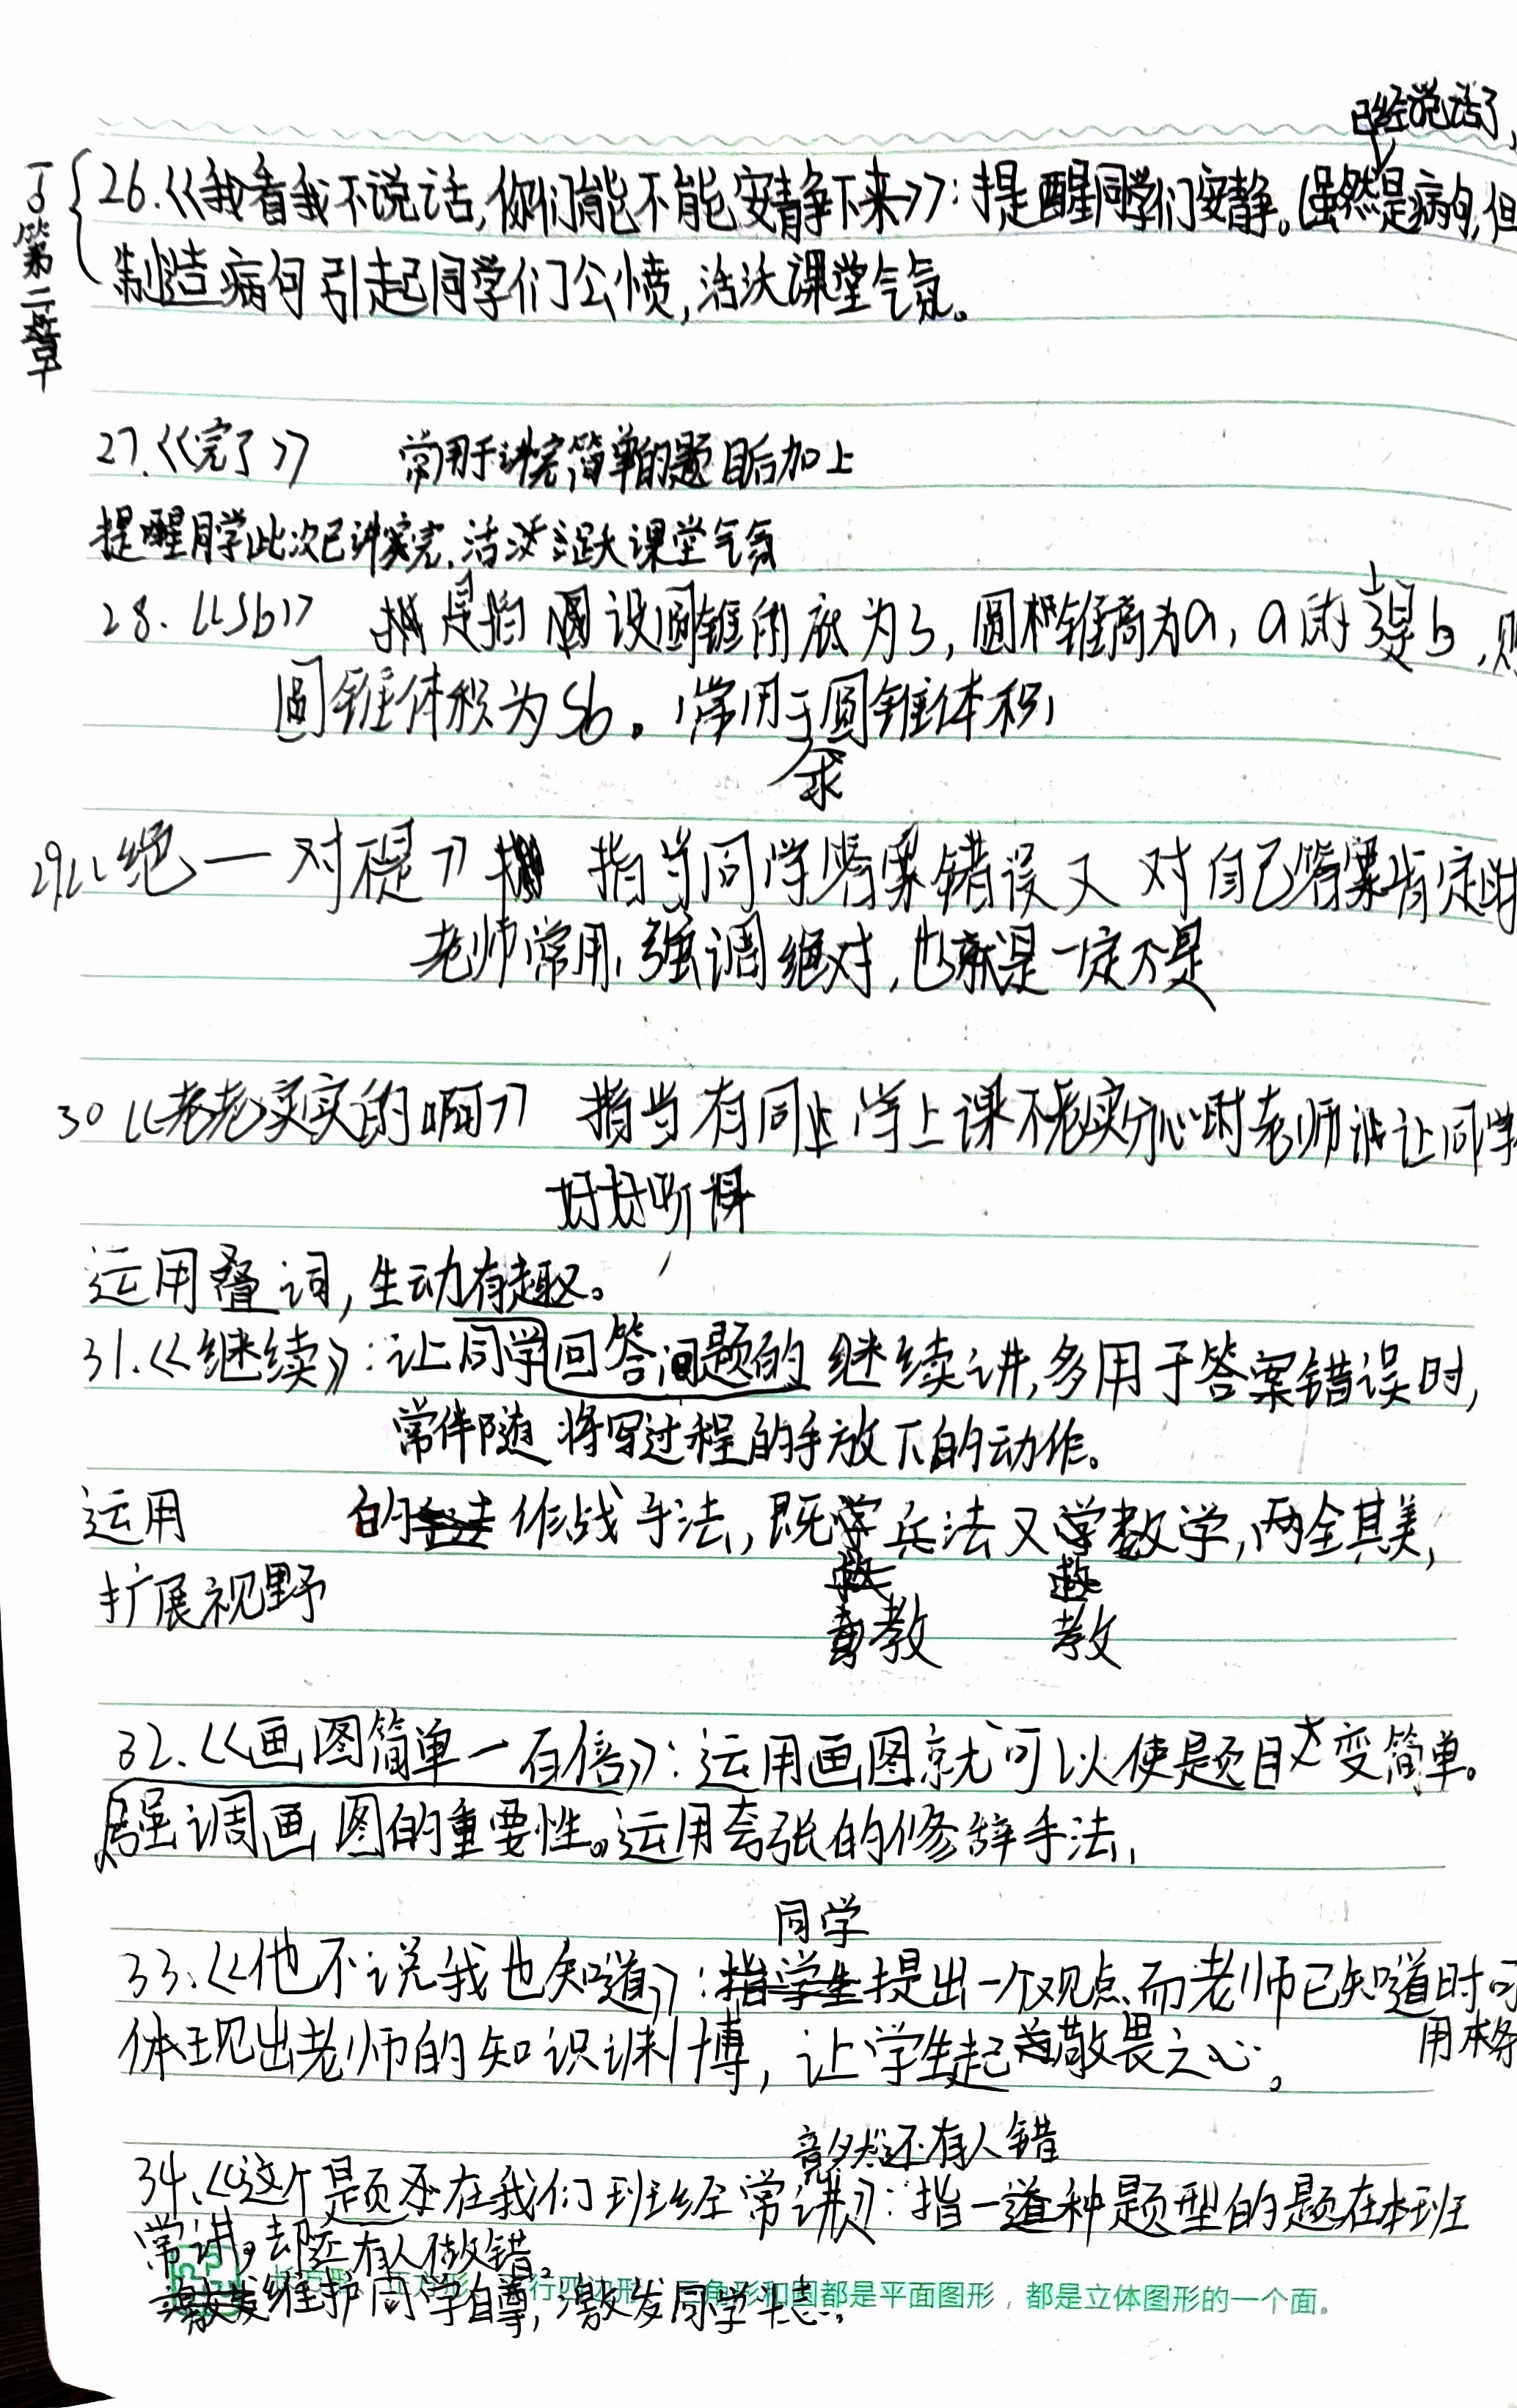 已经说话了,
丁第二章
26.《我看我不说话,你们能不能安静下来》:提醒同学们安静。(虽然是病句,但
制造病句引起同学们公愤,活沃课堂气氛。
27.《完了》 常用于讲完简单的题目后加上
提醒同学此次已讲完,活跃课堂气氛
28.《Sb》 是指 设圆锥的底为S,圆锥高为a,a的1/3是b,则
圆锥体积为Sb。(常用于求圆锥体积)
29.《绝一对禔》 指当同学答案错误又对自己答案肯定时
老师常用,强调绝对,也就是一定不是
30《老老实实的啊》 指当有同学上课不老实分心时老师说让同学
好好听课
运用叠词,生动有趣。
31.《继续》:让同学回答问题的继续讲,多用于答案错误时,
常伴随将写过程的手放下的动作。
运用 的 作战手法,既教兵法又教数学,两全其美,
扩展视野
32.《画图简单一百倍》:运用画图就可以使题目变简单。
强调画图的重要性。运用夸张的修辞手法,
33.《他不说我也知道》:同学提出一个观点而老师已知道时可
用本条
体现出老师的知识渊博,让学生起敬畏之心。
竟然还有人错
34.《这个题还在我们班经常讲》:指一种题型的题在本班
常讲,却还有人做错。
维护同学自尊,激发同学斗志。
行四边形、三角形和圆都是平面图形,都是立体图形的一个面。